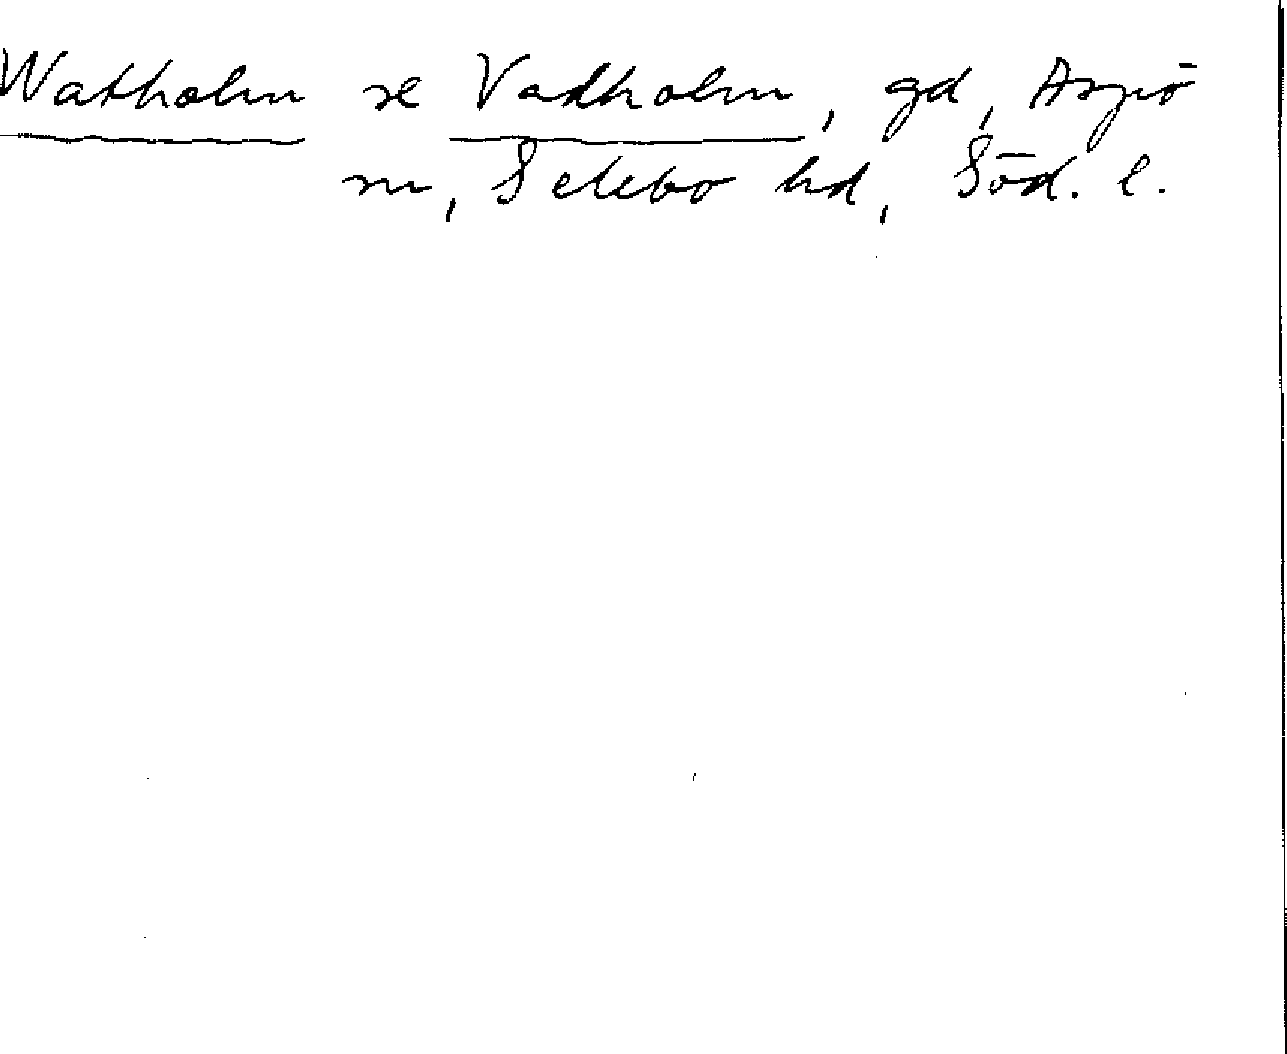 Watholm se Vadholm, gd, Aspö
sn, Selebo hd, Söd. l.